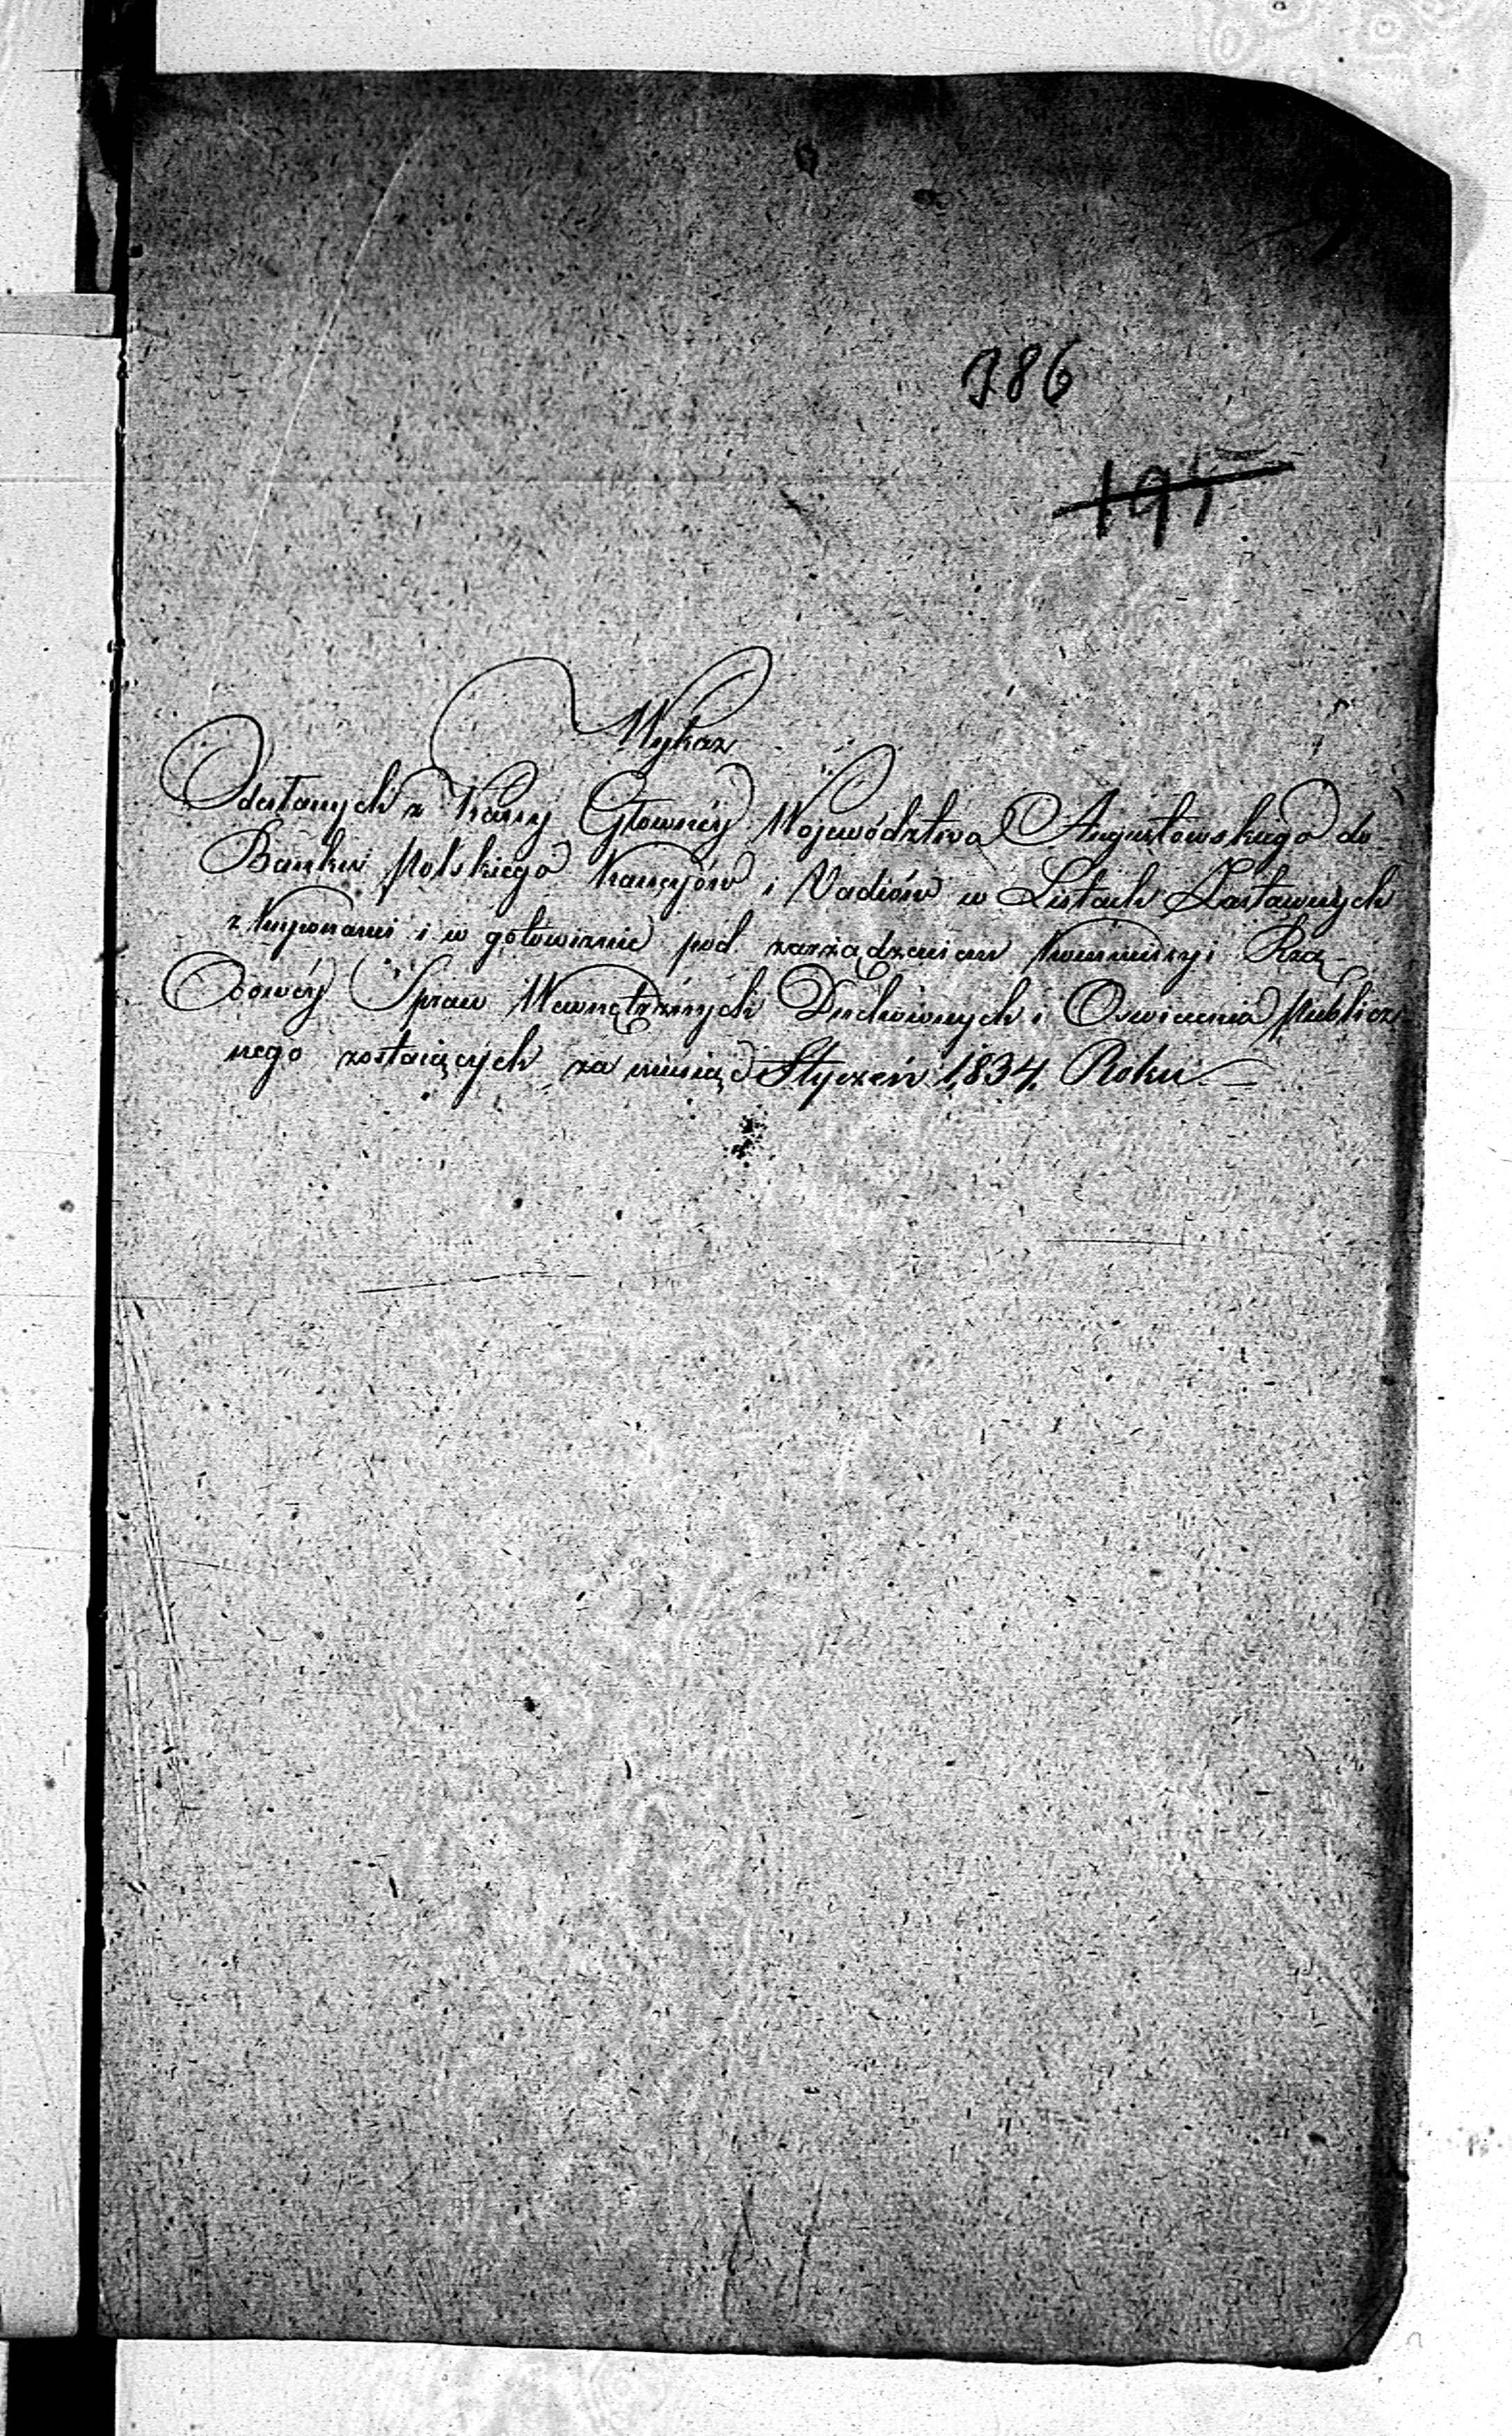 386
195
Wykaz
Odesłanych z Kassy Głównéy Województwa Augustowskiego do
Banku Polskiego Kaucyiów i Vadiów w Listach Zastawnych
z Kuponami i w gotowiznie pod zarządzeniem Kommissyi Rzą-
dowéy Spraw Wewnętrznych Duchownych i Oswiecenia Publicz
nego zostaiących za miesiąc Styczeń 1834 Roku